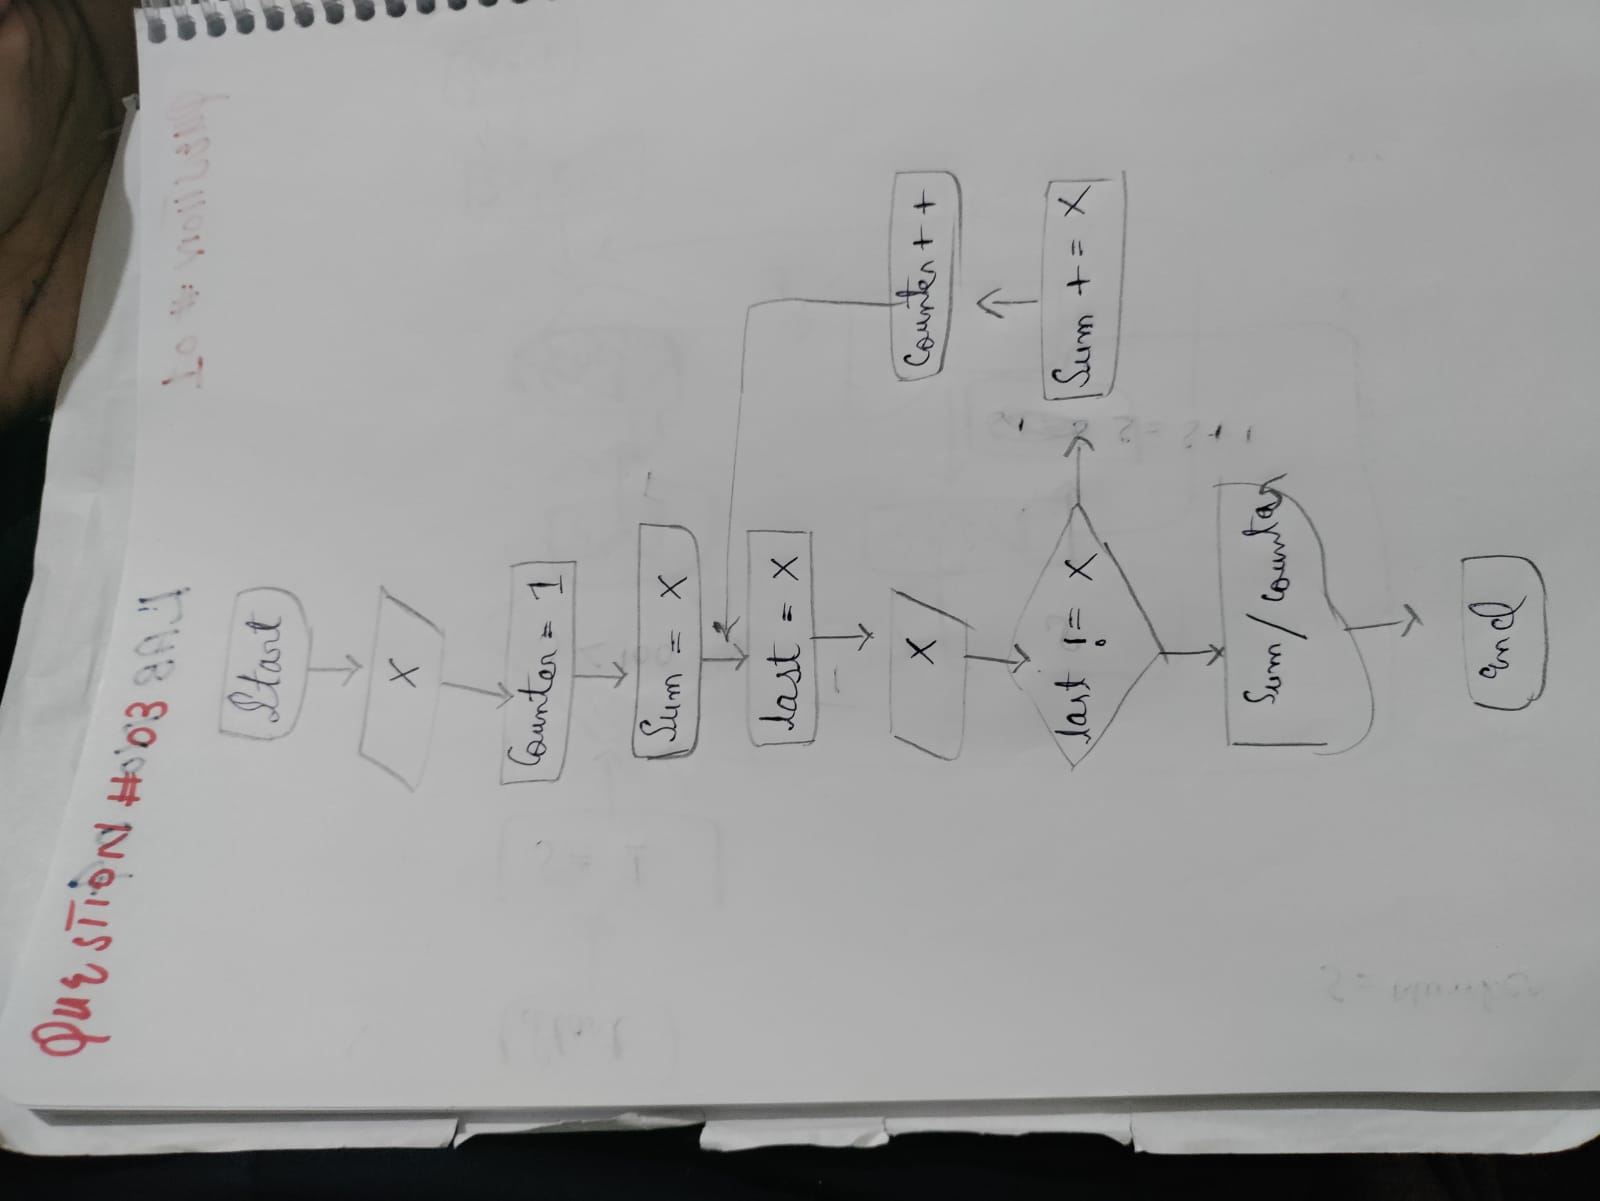 QUESTION #03
Start
X
Counter = 1
Sum = X
last = X
X
last != X
Sum += X
Counter ++
Sum / Countar
End